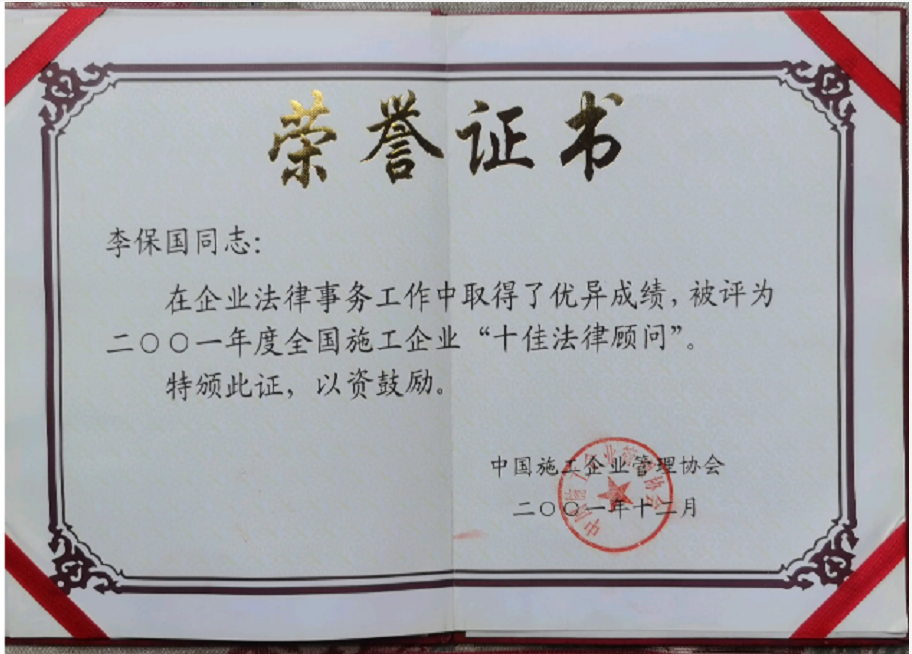 荣誉证书
李保国同志：
在企业法律事务工作中取得了优异成绩，被评为
二〇〇一年度全国施工企业“十佳法律顾问”。
特颁此证，以资鼓励。
中国施工企业管理协会
二〇〇一年十二月
中国施工企业管理协会